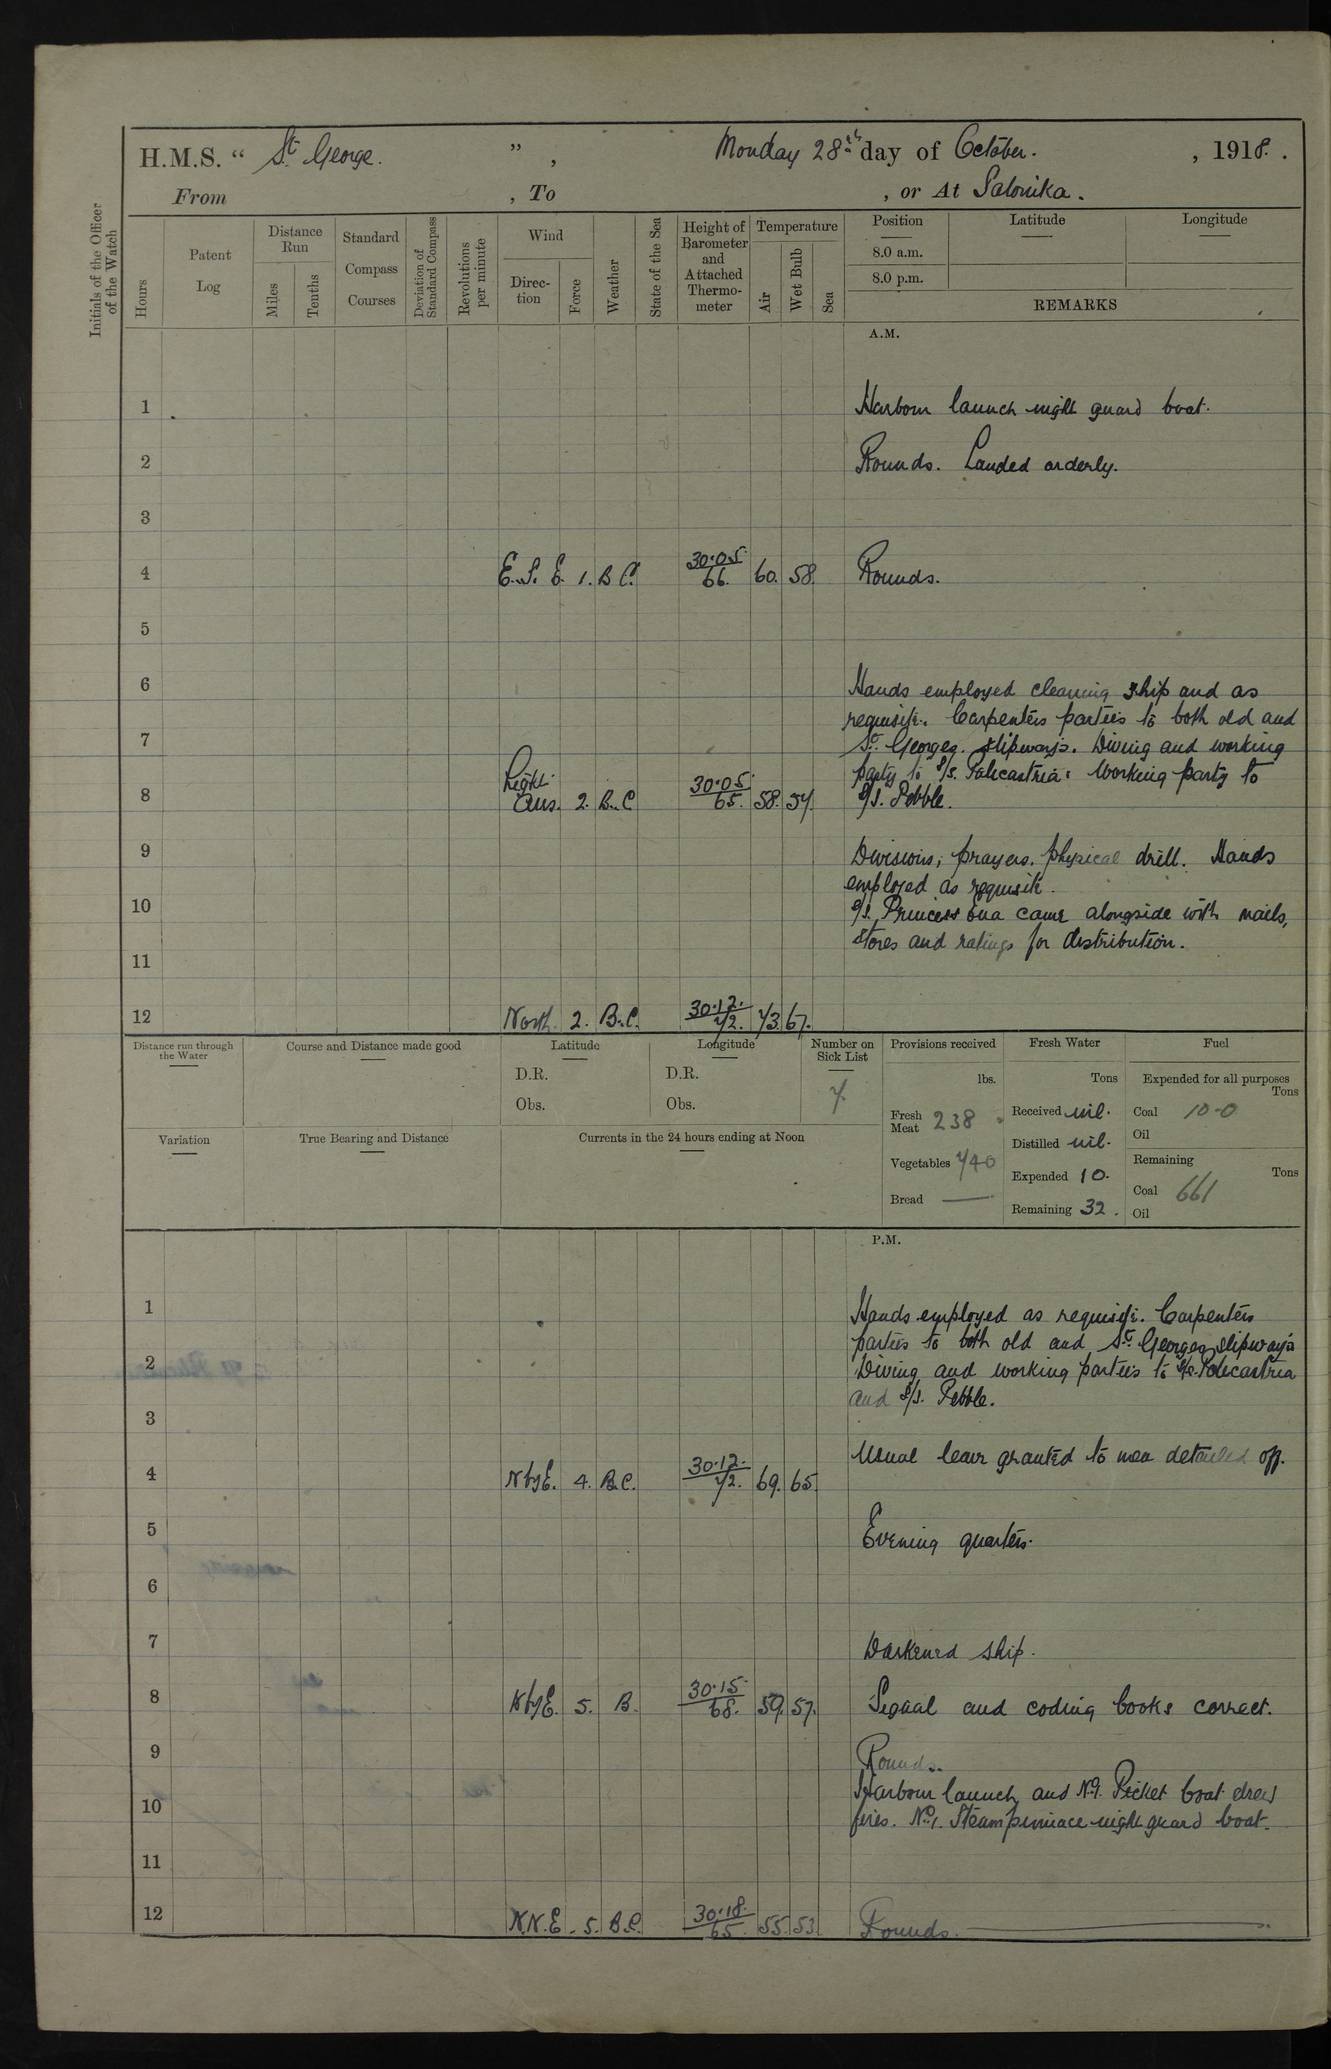 H.M.S. “ St. George. ” , Monday 28th day of October. , 1918. .
From , To , or At Salonika.
Initials of the Officer of the Watch
Hours
Patent Log
Distance Run
Miles
Tenths
Standard Compass Courses
Deviation of Standard Compass
Revolutions per minute
Wind
Direction
Force
Weather
State of the Sea
Height of Barometer and Attached Thermometer
Temperature
Air
Wet Bulb
Sea
Position Latitude Longitude
8.0 a.m.
8.0 p.m.
REMARKS
A.M.
1 Harbour launch night guard boat.
2 Rounds. Landed orderly.
3
4 E.S.E. 1. B C. 30.05/66. 60. 58. Rounds.
5
6 Hands employed cleaning ship and as
requisite. Carpenters parties to both old and
7 St. Georges. slipways. Diving and working
party to S/S. Palecastria. Working party to
8 Light airs. 2. B.C 30.05/65. 58. 57. S/S. Pebble.
9 Divisions, prayers, physical drill. Hands
employed as requisite.
10 S/S. Princess Ena came alongside with mails,
stores and ratings for distribution.
11
12 North. 2. B.C. 30.12./72. 73. 67.
Distance run through the Water
Course and Distance made good
Latitude
D.R.
Obs.
Longitude
D.R.
Obs.
Number on Sick List
7
Variation
True Bearing and Distance
Currents in the 24 hours ending at Noon
Provisions received
lbs.
Fresh Meat 238
Vegetables 740
Bread —
Fresh Water
Tons
Received nil.
Distilled nil.
Expended 10.
Remaining 32.
Fuel
Expended for all purposes
Tons
Coal 10-0
Oil
Remaining
Tons
Coal 661
Oil
P.M.
1 Hands employed as requisite. Carpenters
parties to both old and St. Georges slipways
2 Diving and working parties to S/S. Palecastria
and S/S. Pebble.
3
4 N by E. 4. B.C. 30.12./72. 69. 65. Usual leave granted to men detailed off.
5 Evening quarters.
6
7 Darkened ship.
8 N by E. 5. B. 30.15/68. 59. 57. Signal and coding books correct.
9 Rounds.
Harbour launch and No.1. Picket boat drew
10 fires. No.1. Steam pinnace night guard boat.
11
12 N.N.E. 5. B.C. 30.18./65. 55. 53. Rounds.